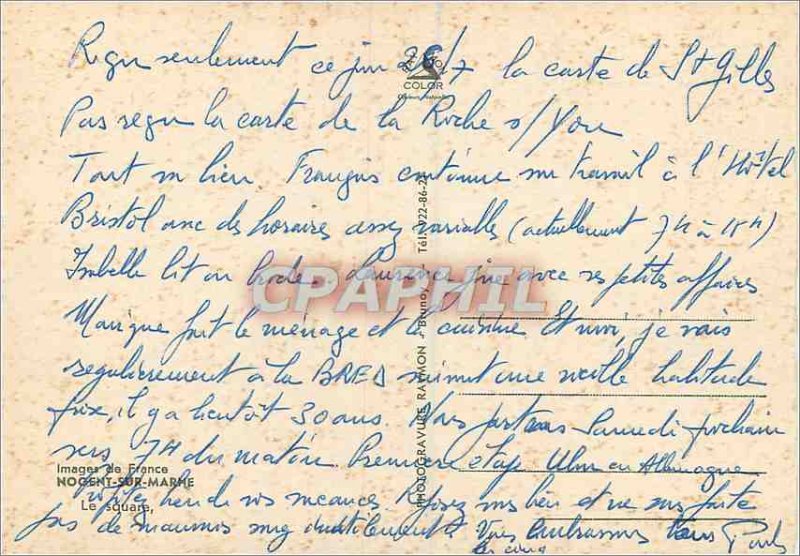 Reçu seulement ce jour 26/7 la carte de St Gilles
COLOR
Pas reçu la carte de la Roche s/Yon
Tout va bien François continue son travail à l'Hôtel
Bristol avec des horaires assez variables (actuellement 7H à 15H)
Isabelle lit ou brode. Laurence joue avec ses petites affaires
CPAPHIL
Monique fait le ménage et la cuisine. Et moi, je vais
régulièrement à la BRED suivant une vieille habitude
fixe, il y a bientôt 30 ans. Nous partons Samedi prochain
vers 7H du matin. Première étape Ulm en Allemagne
Images de France
NOGENT-SUR-MARNE
Le square,
Profitez bien de vos vacances Reposez vous bien et ne vous faite
pas de mauvais sang inutilement. Vous embrassons tous
les cinq
PHOTOGRAVURE RAYMON - Brunoy - Tél. 922-86-2